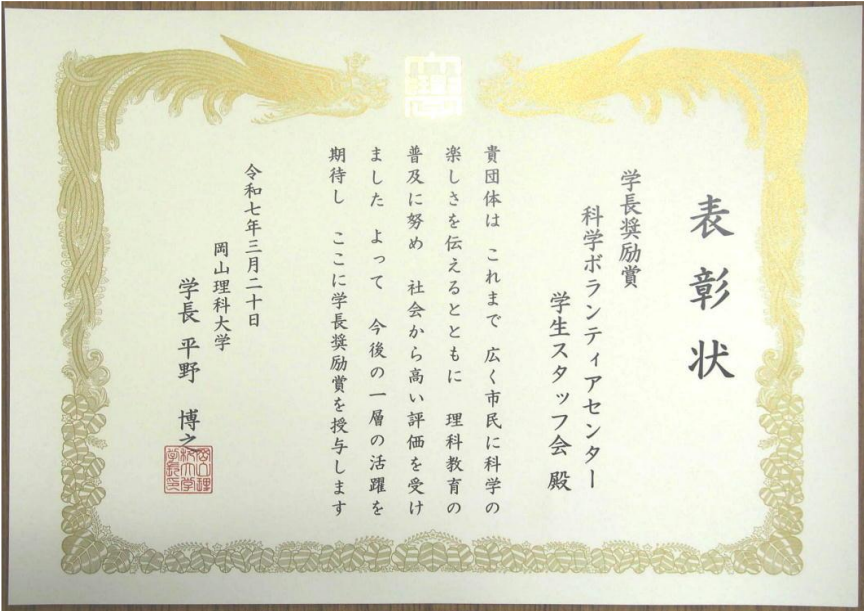 表彰状
学長奨励賞
科学ボランティアセンター
学生スタッフ会 殿
貴団体は これまで 広く市民に科学の
楽しさを伝えるとともに 理科教育の
普及に努め 社会から高い評価を受け
ました よって 今後の一層の活躍を
期待し ここに学長奨励賞を授与します
令和七年三月二十日
岡山理科大学
学長 平野 博之
岡山理
科大学
学長之印